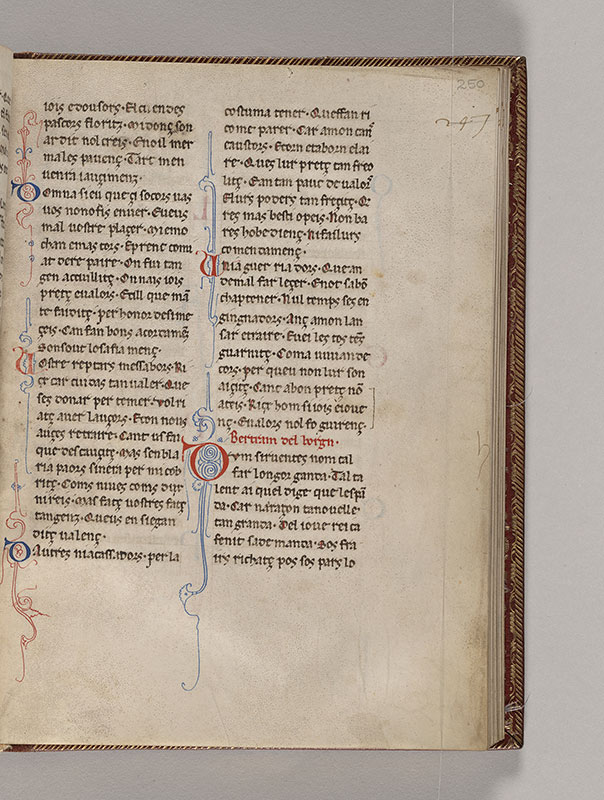 250
247
iois edousors. El cuendes
pascors floritz. Mi donz son
ardit nol creis. En oil mer
males pauenç. Tart men
uenra iauzimenz.
Domna sieu queri socors uas
uos non o fis enuer. Eueus
mal uostre plaçer. Mi e mo
chan emas tors. E prenc comi
at de re paire. On fui tan
gen acuillitz. On nais iois
pretz eualors. E cill que
te faiditz. per honor de sime
zeis. Can fan bons acordamenz
Son sout lo fa fia menz.
Vostre reptars messabors. Ri
cs car cuidas tan ualer. Que
ses donar per temer. vol ri
atz auer lauzors. E con nous
auzes retraire. Cant us fai
que descauzitz. Mas sembla
ria paors sinera per mi cob
ritz. Coms nimes coms dur
ni reis. Mas fatz uostres fatz
tangenz. Queus en segan
ditz ualenz.
Dautres niacassadors. per la
costuma tener. Que ffan ri
comt parer. Car amon
caustors. E corn e tabor n elai
re. Ques lur pretz tan freo
litz. E an tan pauc de ualor
Elurs poders tan frezitz. Q
res mas besti o peis. Non ba
res hobedienz. Ni fai lurs
comendamenz.
Ni a guer riadors. Que an
de mal far lezer. E not sabon
chaptener. Nul temps ses en
gingnadors. Anz amon lan
sar e traire. E uei los totz
guarnitz. Com a uiuian de
tors. per que u non lur son
aizitz. Canc a bon pretz non
ateis. Ricx hom si iois e iouent
nz. E ualors nol fo guirenz.
Bertram del borgn.
Dun siruentes nom cal
far longor ganda. Tal ta
lent ai quel dige que lespan
da. Car nai razon tan ouelle
tan granda. Del ioue rei ca
fenit sa demanda. Sos fra
irs richartz pos sos pairs lo